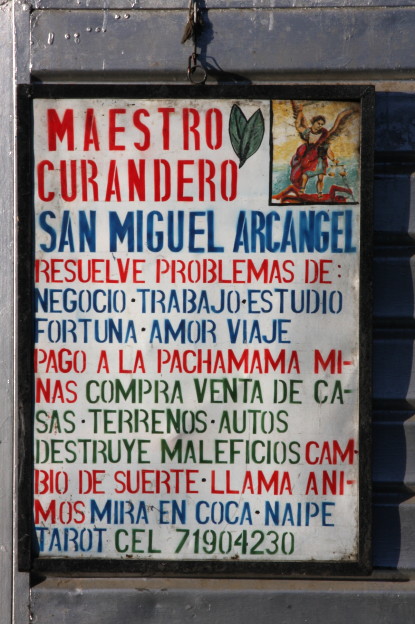 MAESTRO
CURANDERO
SAN MIGUEL ARCANGEL
RESUELVE PROBLEMAS DE:
NEGOCIO·TRABAJO·ESTUDIO
FORTUNA·AMOR VIAJE
PAGO A LA PACHAMAMA MI-
NAS COMPRA VENTA DE CA-
SAS·TERRENOS·AUTOS
DESTRUYE MALEFICIOS CAM-
BIO DE SUERTE·LLAMA ANI-
MOS MIRA EN COCA·NAIPE
TAROT CEL 71904230